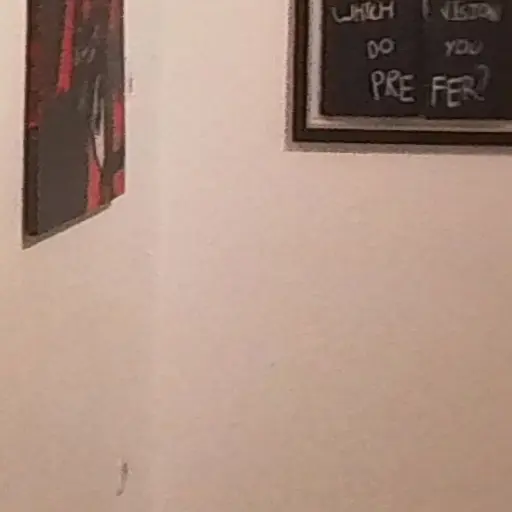 WHICH VISION
DO YOU
PREFER?